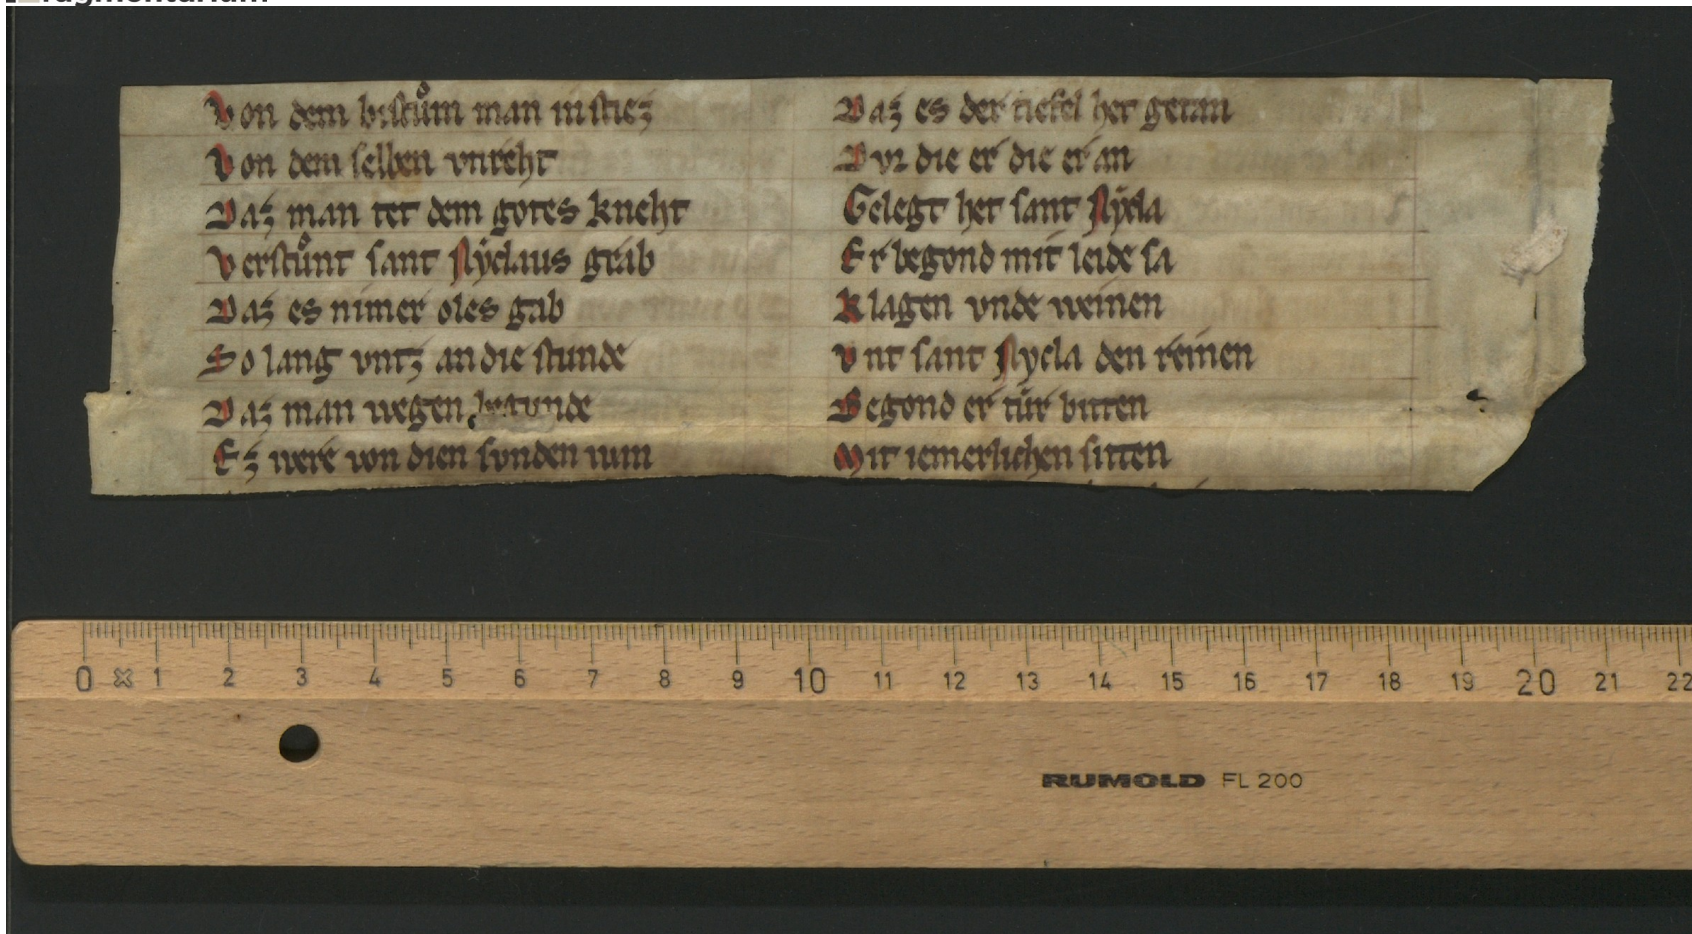 Von dem bistům man in stiez
Von dem selben vnreht
Daz man tet dem gotes kneht
Verstůnt sant Nyclaus grab
Daz es nimer oles gab
So lang vntz an die stunde
Daz man wegen begunde
Ez were von dien sunden
Daz es der tiefel het getan
Dvr die er die er an
Gelegt het sant Nycla
Er begond mit leide sa
Klagen vnde weinen
Vnt sant Nycla den reinen
Begond er tür bitten
Mit iemerlichen sitten
0 1 2 3 4 5 6 7 8 9 10 11 12 13 14 15 16 17 18 19 20 21 22
RUMOLD FL 200